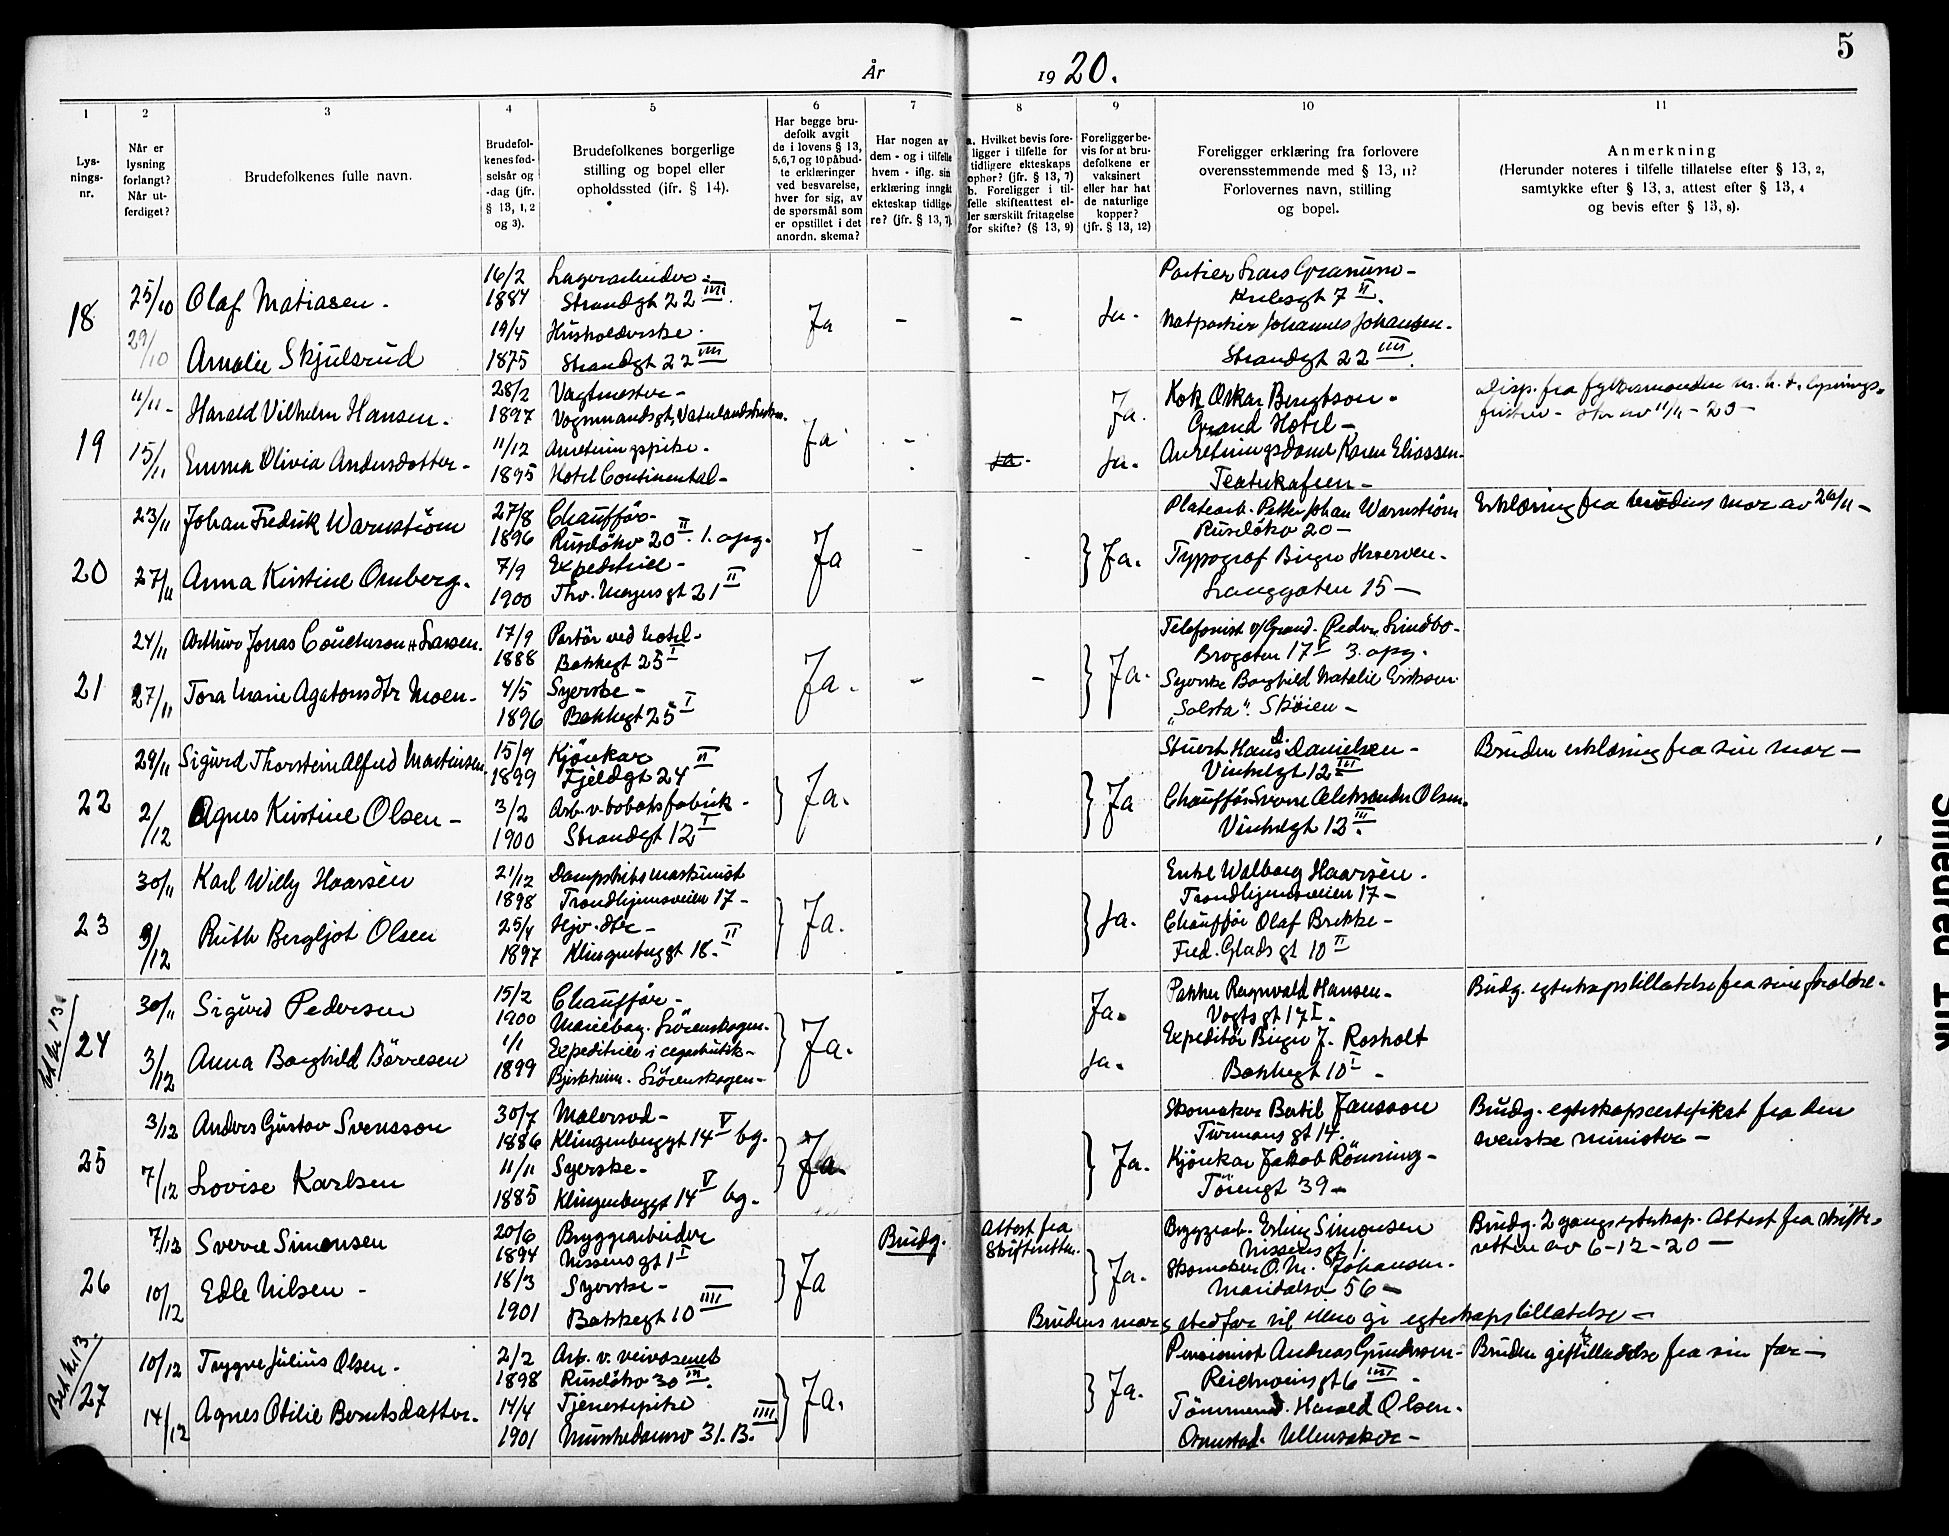 5
År 1920.
1
Lys-
nings-
nr.
2
Når er
lysning
forlangt?
Når ut-
ferdiget?
3
Brudefolkenes fulle navn.
4
Brudefol-
kenes fød-
selsår og
-dag (jfr.
§ 13, 1, 2
og 3).
5
Brudefolkenes borgerlige
stilling og bopel eller
opholdssted (jfr. § 14).
6
Har begge bru-
defolk avgit
de i lovens § 13,
5,6,7 og 10 påbud-
te erklæringer
ved besvarelse,
hver for sig, av
de spørsmål som
er opstillet i det
anordn. skema?
7
Har nogen av
dem - og i tilfelle
hvem - iflg. sin
erklæring inngåt
ekteskap tidlige-
re? (jfr. § 13, 7)
8
a. Hvilket bevis fore-
ligger i tilfelle for
tidligere ekteskaps
ophør? (jfr. § 13, 7)
b. Foreligger i til-
felle skifteattest el-
ler særskilt fritagelse
for skifte? (§ 13, 9)
9
Foreligger be-
vis for at bru-
defolkene er
vaksinert
eller har hat
de naturlige
kopper?
(jfr. § 13, 12)
10
Foreligger erklæring fra forlovere
overensstemmende med § 13, 11?
Forlovernes navn, stilling
og bopel.
11
Anmerkning
(Herunder noteres i tilfelle tillatelse efter § 13, 2,
samtykke efter § 13, 3, attest efter § 13, 4
og bevis efter § 13, 8).
18
25/10
29/10
Olaf Matiasen -
Amalie Skjulsrud
16/2
1884
19/4
1875
Lagerarbeider -
Strandgt 22 IIII.
Husholderske -
Strandgt 22 IIII
Ja
-
-
Ja -
Portier Lars Granum -
7 II.
Natportier Johannes Johansen -
Strandgt 22 IIII.
19
11/11 -
15/11
Harald Vilhelm Hansen -
Emma Olivia Andersdatter -
28/2
1897
11/12
1895
Vagtmester -
Vognmandsgt,
Anretningspike -
Hotel Continental -
Ja
-
Ja -
Ja -
Ja -
Kok Oskar Bengtson -
Grand Hotel -
Anretningsdame Karen Eliassen -
Teaterkafeen -
Disp. fra fylkesmanden m. h. t. lysnings-
fristen -
20
23/11
27/11
Johan Fredrik Warnström
Anna Kirstine Omberg -
27/8
1896
7/9
1900
Chauffør -
Rusdökv 20 II. 1. opg.
Expeditrice -
Thv. Meyers gt 21 II
Ja
-
-
Ja -
Platearb. Johan Warnström
Rusdökv 20 -
Typograf Birger
Langgaten 15 -
Erklæring fra brudens mor av 26/11 -
21
24/11
27/11
Arthur Jonas Larsen -
Tora Marie Agatonsdtr Moen -
17/9
1888
4/5
1896
Portör ved hotel -
Bakkegt 25 I
Syerske -
Bakkegt 25 I
Ja -
-
-
Ja -
Telefonist v/Grand. Peder Lindbo -
Brogaten 17 I 3. opg.
Syerske Borghild Natalie Eriksen
"Solsta". Skøien -
22
29/11
2/12
Sigurd Thorstein Alfred Martinsen
Agnes Kirstine Olsen -
15/9
1899
3/2
1900
Kjörekar
Fjeldgt 24 II
Arb. v. tobaksfabrik -
Strandgt 12 I
Ja -
Ja
Stuert Hans D. Danielsen -
Vinkelgt 12 III
Chauffør Sverre Aleksander Olsen -
Vinkelgt 12 III.
Bruden erklæring fra sin mor -
23
30/11
3/12
Karl Willy Haarsén
Ruth Bergljot Olsen
21/12
1898
25/4
1897
Dampskibsmaskinist
Trondhjemsveien 17 -
Hjv. dtr -
Klingenbuggt 18. II
Ja -
Ja -
Enke Walborg Haarsén -
Trondhjemsveien 17 -
Chauffør Olaf Brekke -
Fred. Glads gt 10 II
24
30/11
3/12
Sigurd Pedersen
Anna Borghild Börresen
15/2
1900
1/1
1899
Chauffør -
Lörenskogen -
Expeditrice i
Bjerkheim. Lörenskogen -
Ja -
Ja -
Ja -
Pakker Ragnvald Hansen -
Vogts gt 17 I -
Expeditör Birger J. Rosholt
Bakkegt 10 I -
Brudg. egteskapstillatelse fra sine forældre -
25
3/12
7/12
Anders Gustav Svensson
Lovise Karlsen
30/7
1886
11/11
1885
Malersvd -
Klingenbuggt 14 V bg.
Syerske -
Klingenbuggt 14 V bg -
Ja -
Ja -
Skomaker Bertil Jansson
Turmans gt 14.
Kjörekar Jakob Rönning -
Töiengt 39 -
Brudg. egteskapscertifikat fra den
svenske minister -
26
7/12
10/12
Sverre Simensen
Edle Nilsen -
20/6
1894
18/3
1901
Bryggearbeider
Nissens gt 1 I
Syerske -
Bakkegt 10 IIII
Ja
Brudg.
Attest fra
Skifteretten -
Ja -
Bryggearb. Erling Simonsen
Nissens gt 1.
Skomaker O. M. Johansen -
Maridalsv 56 -
Brudg. 2 gangs egteskap. Attest fra skifte-
retten av 6-12-20 -
Brudens mor og stedfar vil ikke gi egteskapstillatelse -
27
10/12
14/12
Trygve Julius Olsen -
Agnes Otilie Berntsdatter -
2/2
1898
14/4
1901
Arb. v. veivæsenet
Rusdökv 30 III.
Tjenestepike
Munkedamsv 31. B. IIII
Ja -
Ja -
Pensionist Andreas Gundersen -
gt 6 IIII -
Tömmerm. Harald Olsen -
Ullensaker -
Bruden giftetilladelse fra sin far -